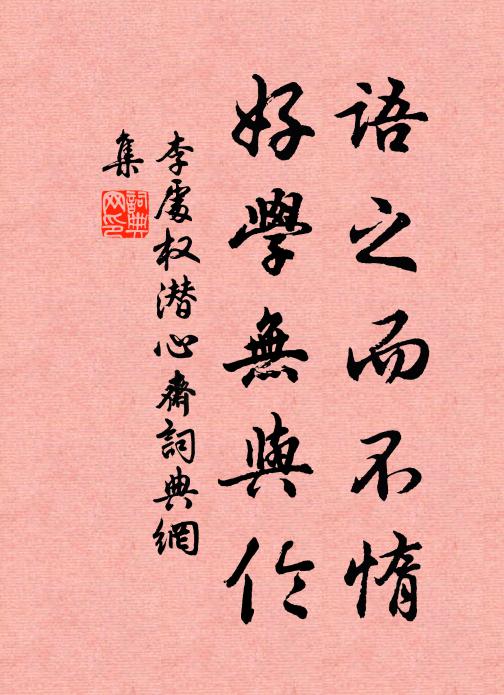 語之而不惰
好學無與伦
李處权潜心齋詞典網
集
詞典网印